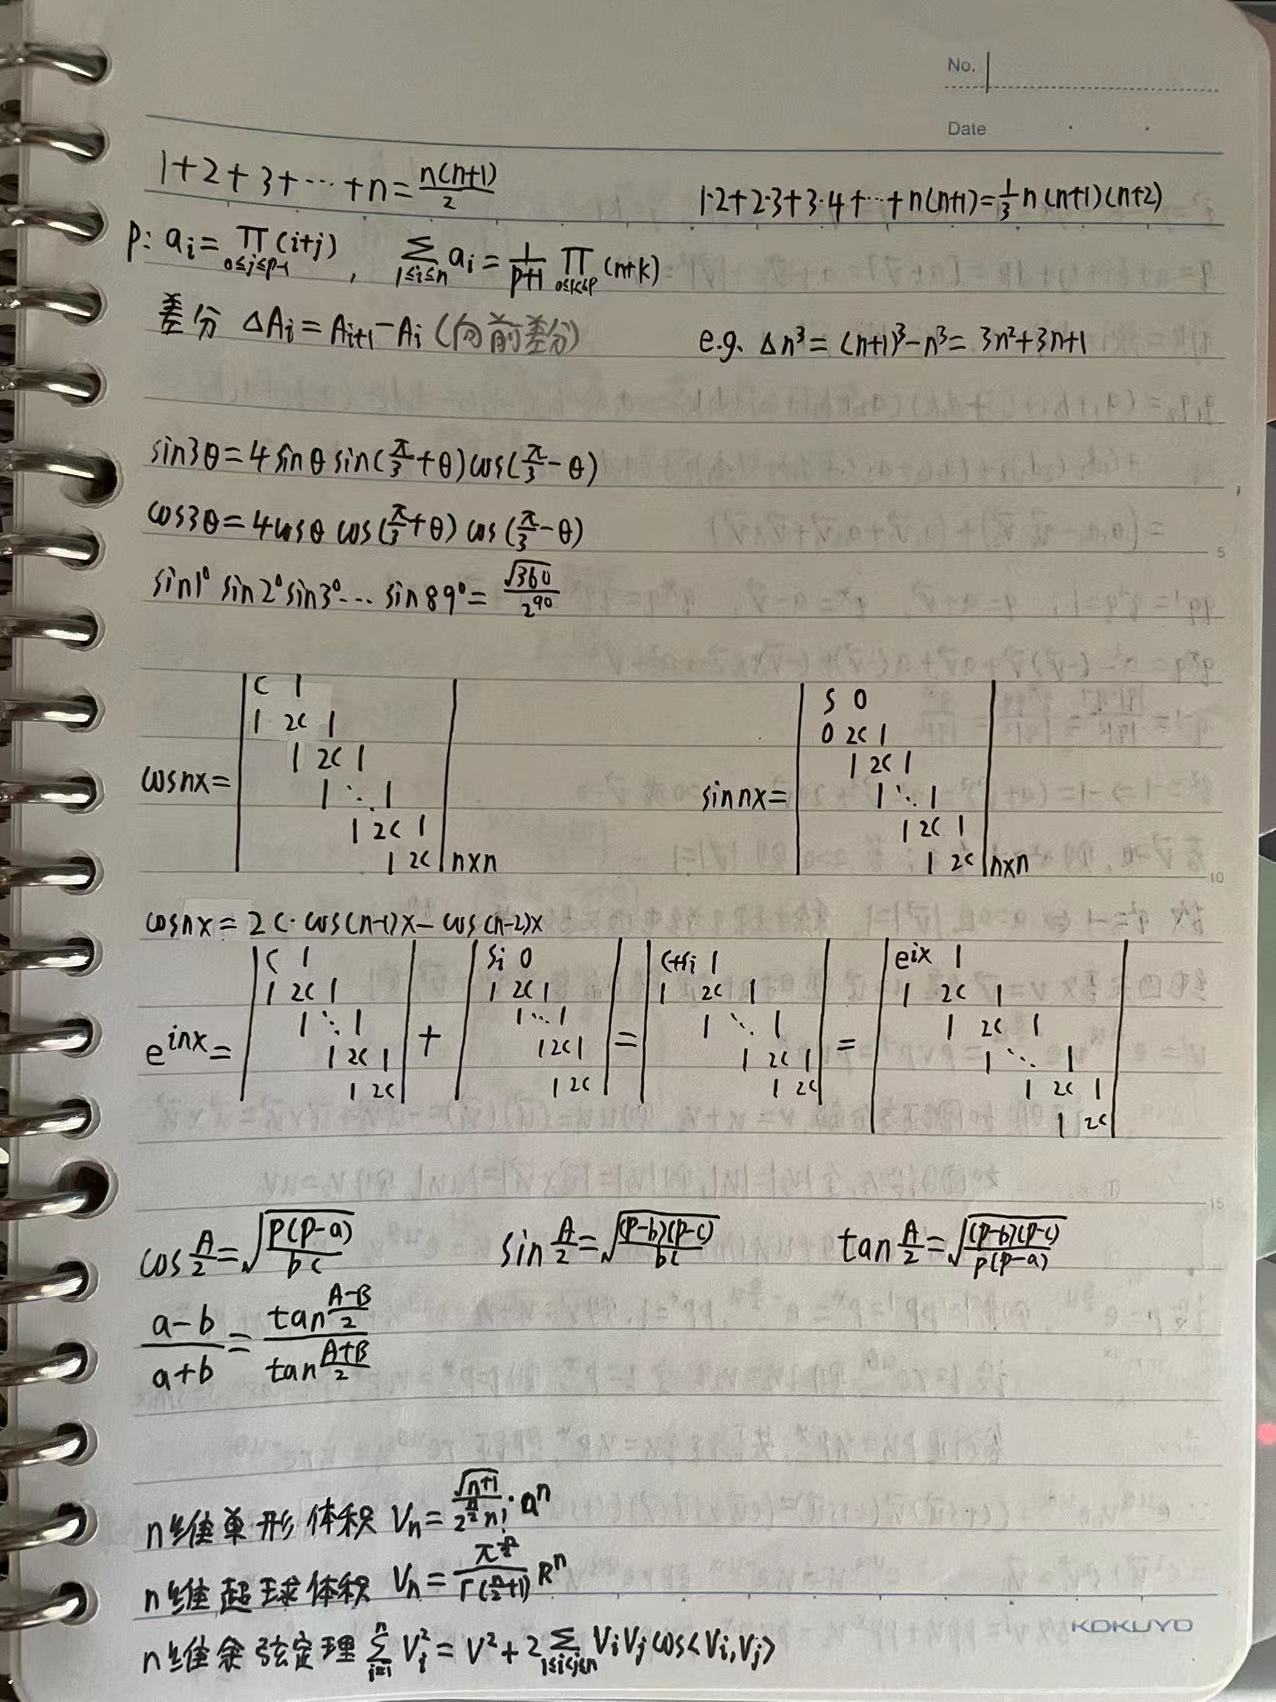 No.
Date
1+2+3+⋯+n=n(n+1)/2    1·2+2·3+3·4+⋯+n(n+1)=1/3 n(n+1)(n+2)
p: a_i=∏_{0≤j≤p-1}(i+j), ∑_{1≤i≤n} a_i=1/(p+1) ∏_{0≤k≤p}(n+k)
差分 ΔA_i=A_{i+1}-A_i (向前差分)    e.g. Δn³=(n+1)³-n³=3n²+3n+1
sin3θ=4sinθ sin(π/3+θ)cos(π/3-θ)
cos3θ=4cosθ cos(π/3+θ) cos(π/3-θ)
5
sin1° sin2° sin3°⋯ sin89°=√360/2^90
cosnx= | C 1
1 2C 1
1 2C 1
1 ⋱ 1
1 2C 1
1 2C | n×n
sin nx= | S 0
0 2C 1
1 2C 1
1 ⋱ 1
1 2C 1
1 2C | n×n
10
cosnx=2C·cos(n-1)x-cos(n-2)x
e^{inx}= | C 1
1 2C 1
1 ⋱ 1
1 2C 1
1 2C |
+ | Si 0
1 2C 1
1 ⋱ 1
1 2C 1
1 2C |
= | C+Si 1
1 2C 1
1 ⋱ 1
1 2C 1
1 2C |
= | e^{ix} 1
1 2C 1
1 2C 1
1 ⋱ 1
1 2C 1
1 2C |
15
cos A/2=√(p(p-a)/bc)    sin A/2=√((p-b)(p-c)/bc)    tan A/2=√((p-b)(p-c)/p(p-a))
(a-b)/(a+b)=tan((A-B)/2)/tan((A+B)/2)
n维单形体积 V_n=√(n+1)/(2^{n/2} n!)·a^n
n维超球体积 V_n=π^{n/2}/Γ(n/2+1) R^n
KOKUYO
n维余弦定理 ∑_{i=1}^{n} V_i²=V²+2∑_{1≤i<j≤n} V_i V_j cos<V_i,V_j>